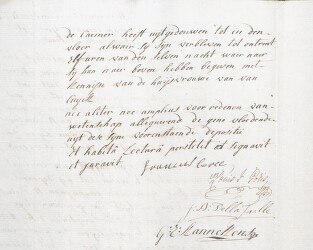 de Caemer heeft uytgedouwen tot in den
vloer alwaer sy syn verbleven tot ontrent
elf uren van den selven nacht waer naer
sy hun naer boven hebben begeven met
kennisse van de huysvrouwe van van
Cuyck
nec aliter nec amplius voor redenen van
wetenschap allegerende de gene vloeiende
uyt dese syne voorenstaende depositie
et habita lectura persistit et signavit
et juravit
Franciscus
J. B. Della Faille
G. E. Hannekens